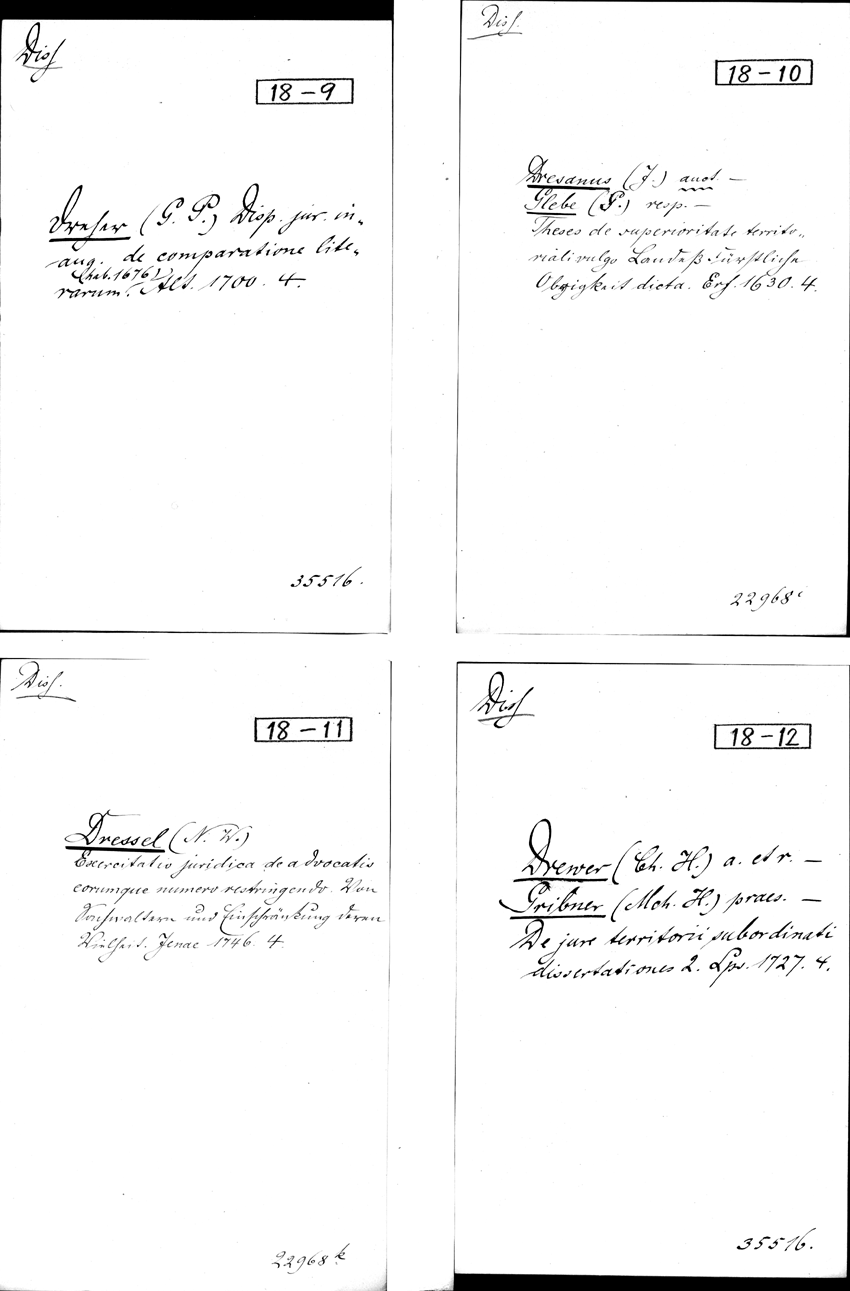 Diss
18-9
Dreher (G. P.) Disp. jur. in-
aug. de comparatione lite-
(hab. 1676)
rarum. Alt. 1700. 4.
35516.
Diss.
18-10
Dresanus (J.) auct. —
Glebe (P.) resp. —
Theses de superioritate territo-
riali vulgo Landeß Fürstliche
Obrigkeit dicta. Erf. 1630. 4.
22968 i
Diss.
18-11
Dressel (N. W.)
Exercitatio juridica de advocatis
eorumque numero restringendo. Von
Sachwaltern und Einschränkung deren
Vielheit. Jenae 1746. 4.
22968 k.
Diss
18-12
Drewer (Ch. H.) a. et r. —
Gribner (Mch. H.) praes. —
De jure territorii subordinati
dissertationes 2. Lps. 1727. 4.
35516.